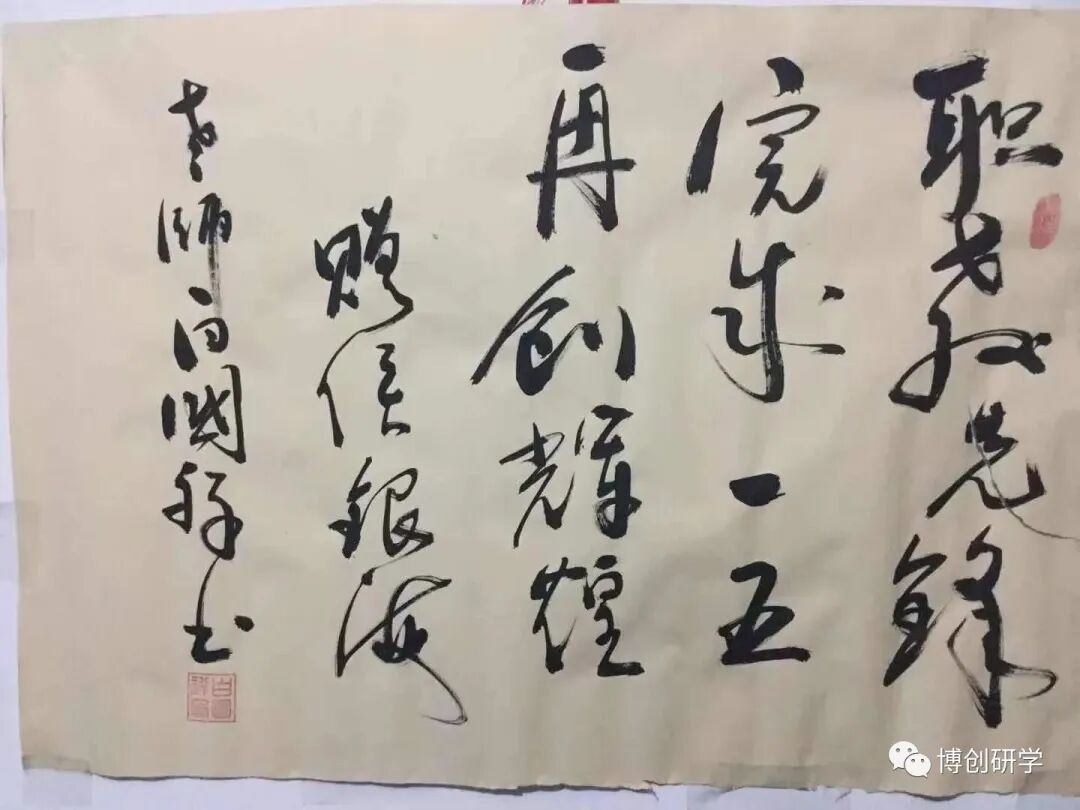 职教先锋
完成一五
再创辉煌
赠侯银海
老师白国祥书
博创研学